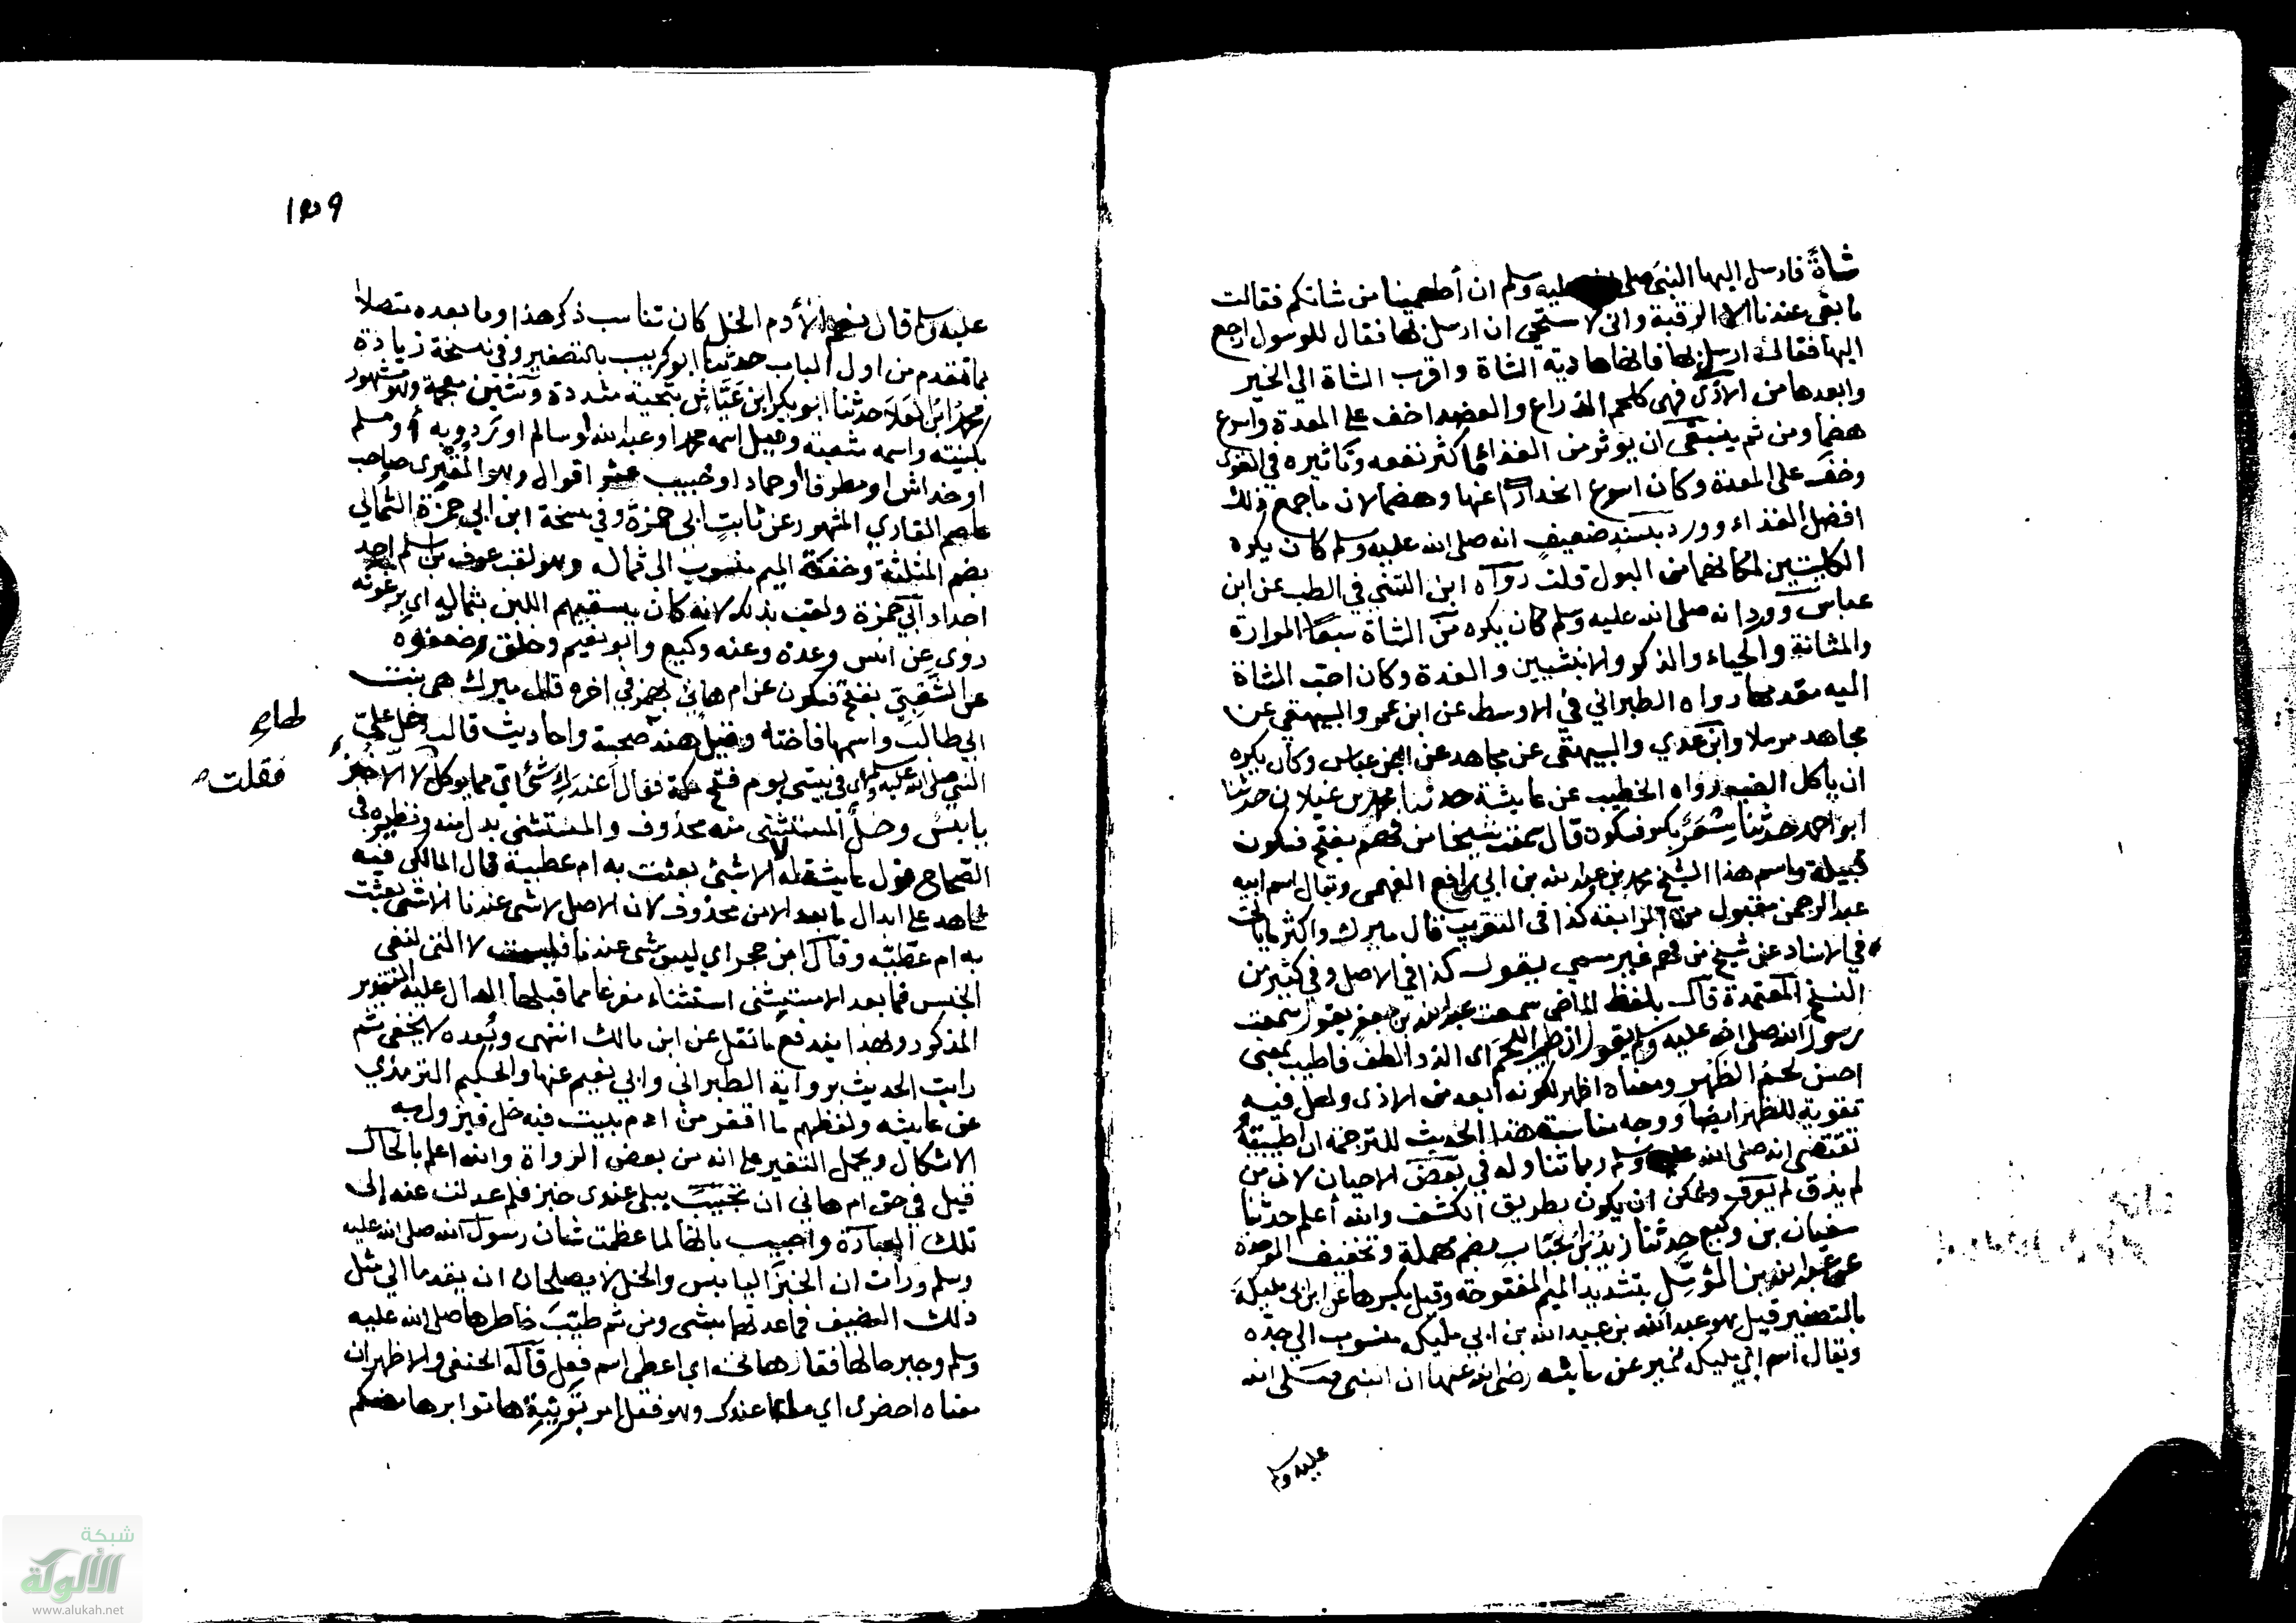 شاة فارسل اليها النبي صلى الله عليه وسلم ان أطعمينا من شاتكم فقالت
ما بقي عندنا الا الرقبة واني لاستحي ان ارسل بها فقال للرسول ارجع
اليها فقال لها ارسلي بها فانها هادية الشاة واقرب الشاة الى الخير
وابعدها من الاذى فهي كلحم الذراع والعضد اخف على المعدة واسرع
هضما ومن ثم ينبغي ان يوثر من الغذاء ما كثر نفعه وتاثيره في القوى
وخف على المعدة وكان اسرع انحدارا عنها وهضما لان ما جمع ذلك
افضل الغذاء وورد بسند ضعيف انه صلى الله عليه وسلم كان يكره
الكليتين لمكانهما من البول قلت رواه ابن السني في الطب عن ابن
عباس وورد انه صلى الله عليه وسلم كان يكره من الشاة سبعا المرارة
والمثانة والحياء والذكر والانثيين والغدة وكان احب الشاة
اليه مقدمها رواه الطبراني في الاوسط عن ابن عمر والبيهقي عن
مجاهد مرسلا وابن عدي والبيهقي عن مجاهد عن ابن عباس وكان يكره
ان ياكل الضب رواه الخطيب عن عايشة حدثنا محمود بن غيلان حدثنا
ابو احمد حدثنا مسعر بكسر فسكون قال سمعت شيخا من فهم بفتح فسكون
قبيلة واسم هذا الشيخ محمد بن عبد الله بن ابي رافع الفهمي ويقال اسم ابيه
عبد الرحمن مقبول من الرابعة كذا في التقريب قال ميرك واكثر ما ياتي
في الاسناد عن شيخ من فهم غير سمي يقول كذا في الاصل وفي كثير من
النسخ المعتمدة قال بلفظ الماضي سمعت عبد الله بن جعفر يقول سمعت
رسول الله صلى الله عليه وسلم يقول ان اطيب اللحم اى الذ والطف فاطيب بمعنى
احسن لحم الظهر ومعناه اظهر لكونه ابعد من الاذى ولعل فيه
تقوية للظهر ايضا ووجه مناسبة هذا الحديث للترجمة ان اطيبيته
تقتضي انه صلى الله عليه وسلم ربما تناوله في بعض الاحيان لان من
لم يذق لم يعرف ويمكن ان يكون بطريق الكشف والله أعلم حدثنا
سفيان بن وكيع حدثنا زيد بن الحباب بضم مهملة وتخفيف الموحدة
عن عبد الله بن المؤمل بتشديد الميم المفتوحة وقيل بكسرها عن ابن ابي مليكة
بالتصغير قيل هو عبد الله بن عبيد الله بن ابي مليكة منسوب الى جده
ويقال اسم ابي مليكة زهير عن عايشه رضي الله عنها ان النبي صلى الله
عليه وسلم
١٥٩
عليه وسلم قال نعم الأدم الخل كان تناسب ذكر هذا وما بعده متصلا
بما تقدم من اول الباب حدثنا ابو كريب بالتصغير وفي نسخة زيادة
محمد ابن العلا حدثنا ابو بكر ابن عَيَّاش بتحتية مشددة وشين معجمة وهو مشهور
بكنيته واسمه شعبة وقيل اسمه محمد او عبد الله او سالم او رؤبة أو مسلم
او خداش او مطرف او حماد او حبيب عشر اقوال وهو المقري صاحب
عاصم القاري المشهور عن ثابت ابي حمزة وفي نسخة ابن ابي حمزة الثمالي
بضم المثلثة وخفة الميم منسوب الى ثماله وهو لقب عوف بن اسلم احد
اجداد ابي حمزة ولقب بذلك لانه كان يسقيهم اللبن بثماله اي برغوته
روى عن انس وعدة وعنه وكيع وابو نعيم وخلق وضعفوه
عن الشعبي بفتح فسكون عن ام هاني بهمز في اخره قال ميرك هي بنت
ابي طالب واسمها فاختة وقيل هند لها صحبة واحاديث قالت دخل علي
النبي صلى الله عليه وسلم اي في بيتي يوم فتح مكة فقال أعندك شئ اي مما يوكل لا الا خبز
فقلت
يابس وخل المستثنى منه محذوف والمستثنى بدل منه ونظيره في
الصحاح قول عايشة لا الا شئ بعثت به ام عطية قال المالكي فيه
شاهد على ابدال ما بعد الا من محذوف لان الاصل لا شي عندنا الا شي بعثت
به ام عطية وقال ابن حجر اي ليس شي عندنا فليست لا التي لنفي
الجنس فما بعد الا مستثنى استثناء مفرغا مما قبلها الدال عليه التقدير
المذكور وبهذا يندفع ما نقل عن ابن مالك انتهى وبعده لا يخفى ثم
رايت الحديث برواية الطبراني وابي نعيم عنها والحكيم الترمذي
عن عايشه ولفظهم ما اقفر من ادم بيت فيه خل فيزول به
الاشكال ويحمل التغير على انه من بعض الرواة والله اعلم بالحال
قيل في حق ام هاني ان تجيب ببلى عندي خبز فلم عدلت عنه إلى
تلك العبارة واجيب بانها لما عظمت شان رسول الله صلى الله عليه
وسلم ورأت ان الخبز اليابس والخل لا يصلحان ان يقدما الي مثل
ذلك الضيف فما عدتهما بشي ومن ثم طيب خاطرها صلى الله عليه
وسلم وجبر حالها فقال هاتي اي اعطي اسم فعل قاله الحنفي والاظهر ان
معناه احضري اي ما عندك وهو فعل امر بقرينة هاتوا برهانكم